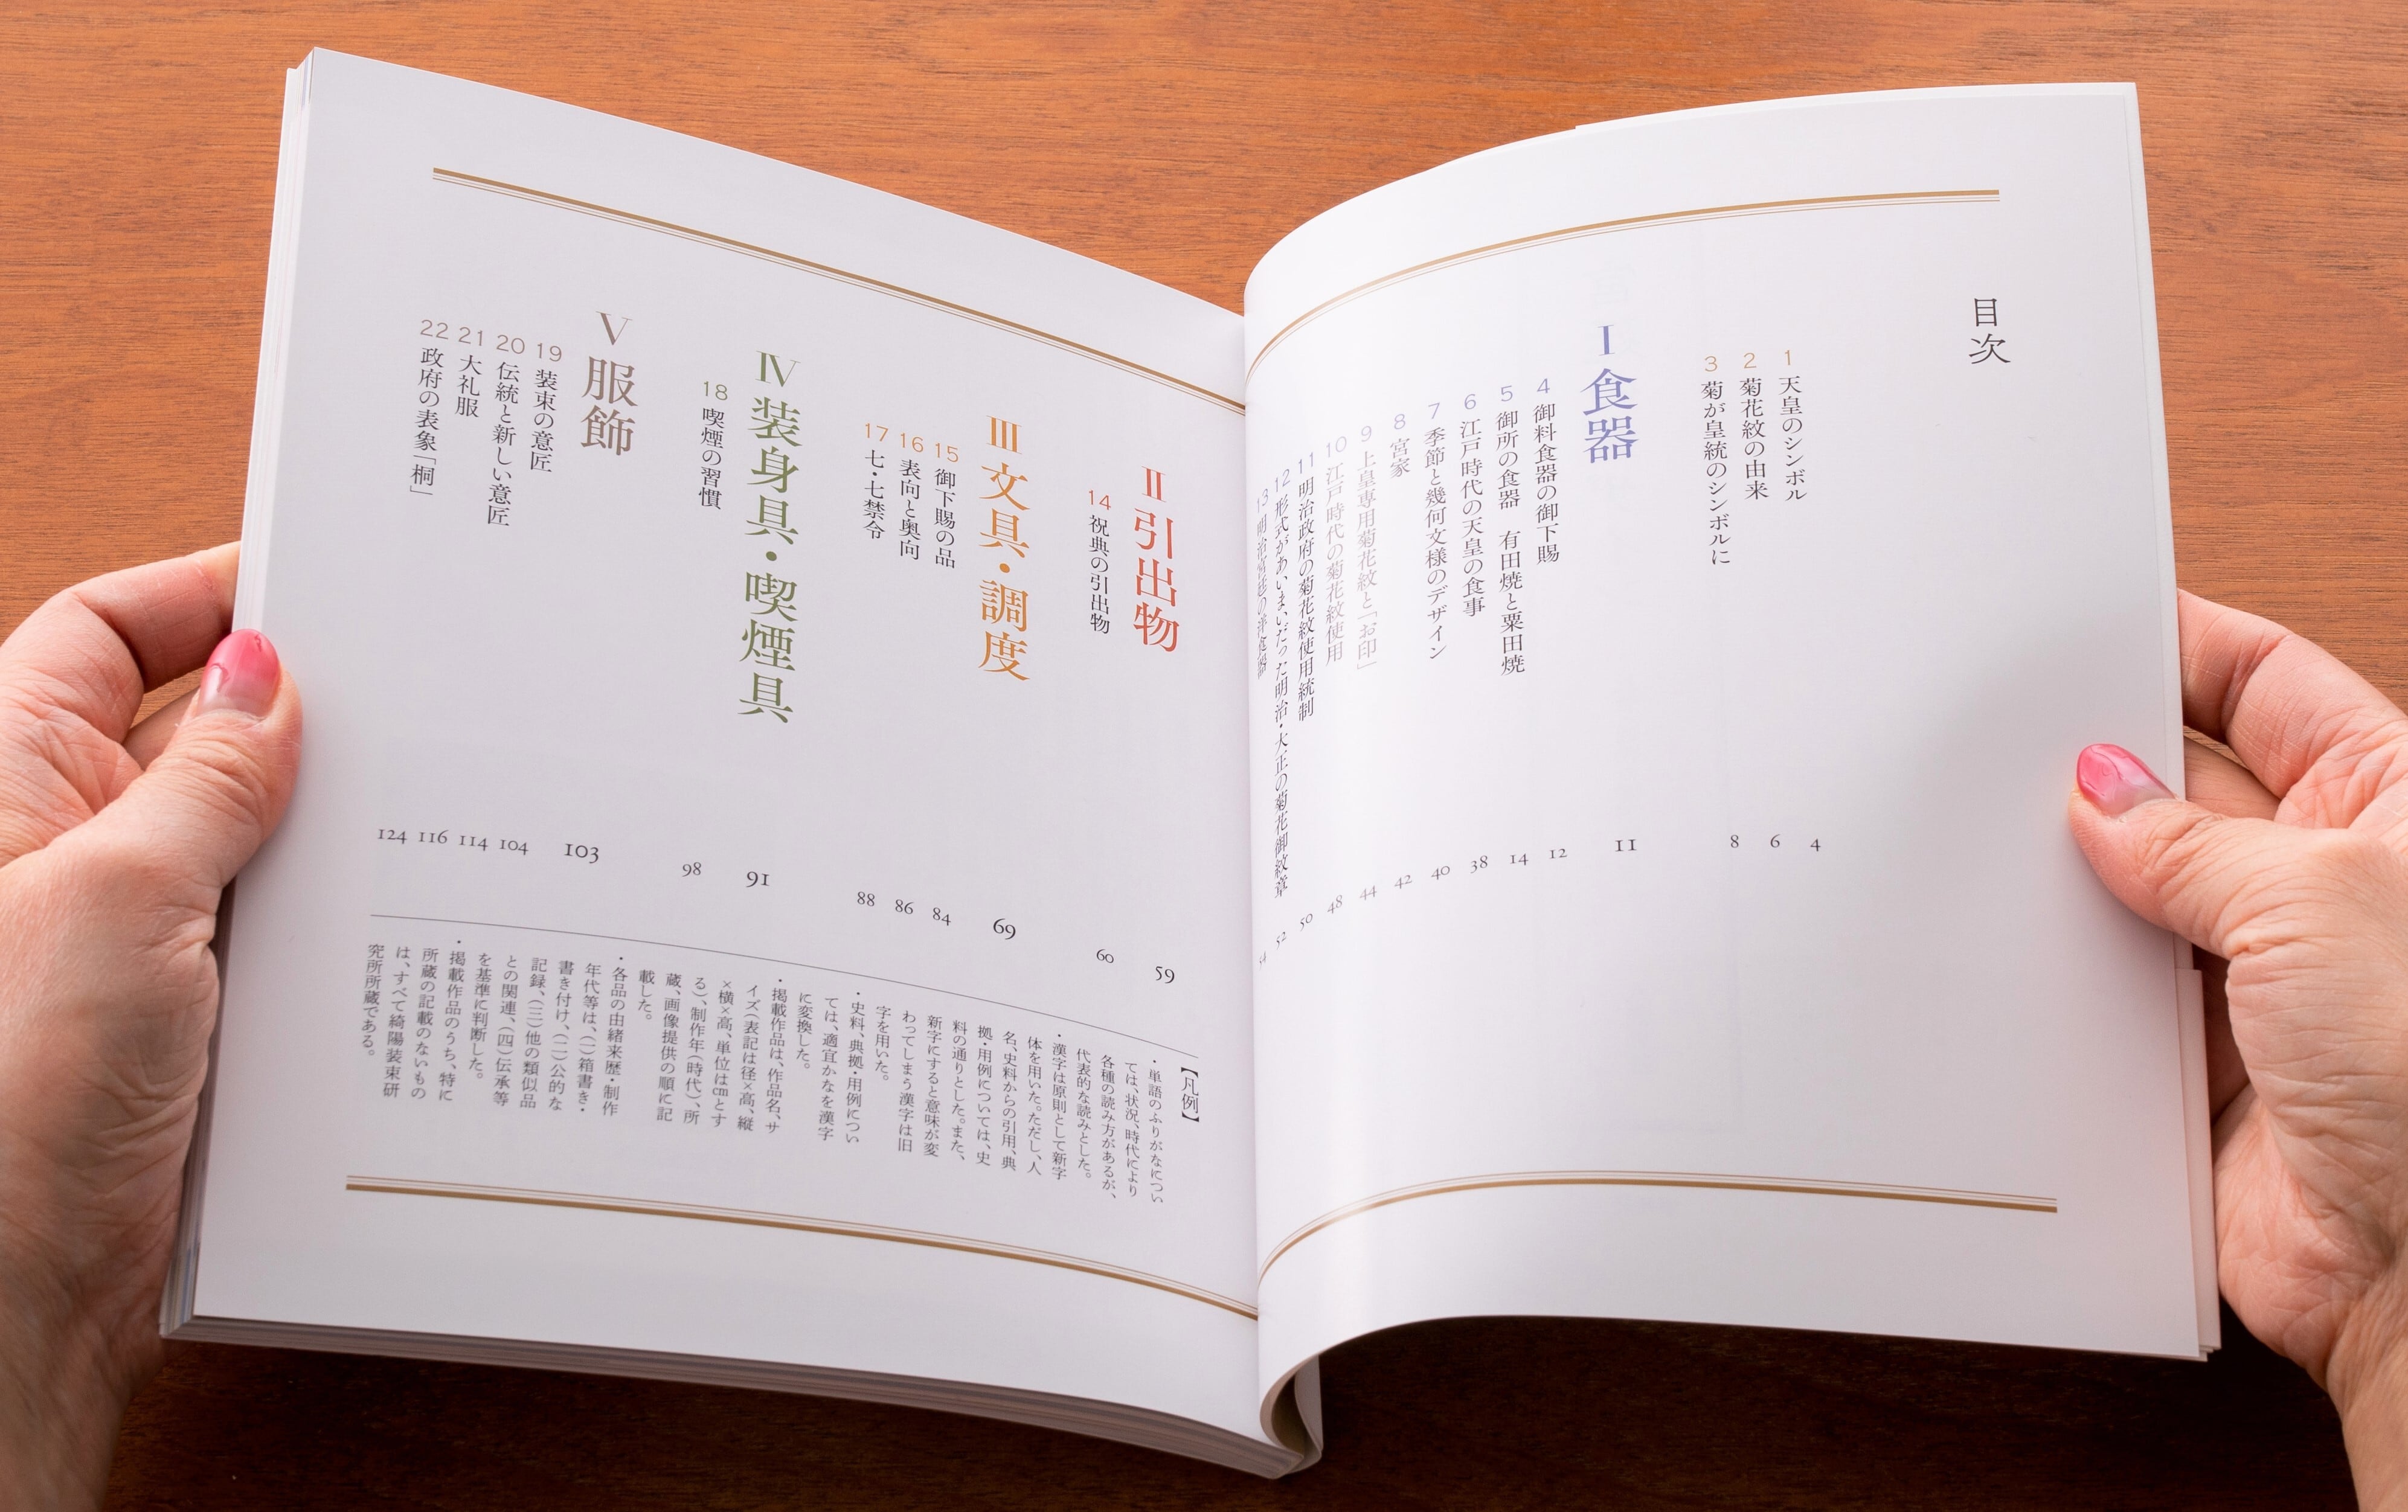 目次
1 天皇のシンボル 4
2 菊花紋の由来 6
3 菊が皇統のシンボルに 8
I 食器 11
4 御料食器の御下賜 12
5 御所の食器　有田焼と粟田焼 14
6 江戸時代の天皇の食事 38
7 季節と幾何文様のデザイン 40
8 宮家 42
9 上皇専用菊花紋と「お印」 44
10 江戸時代の菊花紋使用 48
11 明治政府の菊花紋使用統制 50
12 形式があいまいだった明治・大正の菊花御紋章 52
13 明治宮廷の洋食器 54
II 引出物 59
14 祝典の引出物 60
III 文具・調度 69
15 御下賜の品 84
16 表向と奥向 86
17 七・七禁令 88
IV 装身具・喫煙具 91
18 喫煙の習慣 98
V 服飾 103
19 装束の意匠 104
20 伝統と新しい意匠 114
21 大礼服 116
22 政府の表象「桐」 124
【凡例】
・単語のふりがなについ
ては、状況、時代により
各種の読み方があるが、
代表的な読みとした。
・漢字は原則として新字
体を用いた。ただし、人
名、史料からの引用、典
拠・用例については、史
料の通りとした。また、
新字にすると意味が変
わってしまう漢字は旧
字を用いた。
・史料、典拠・用例につい
ては、適宜かなを漢字
に変換した。
・掲載作品は、作品名、サ
イズ（表記は径×高、縦
×横×高、単位は㎝とす
る）、制作年（時代）、所
蔵、画像提供の順に記
載した。
・各品の由緒来歴・制作
年代等は、（一）箱書き・
書き付け、（二）公的な
記録、（三）他の類似品
との関連、（四）伝承等
を基準に判断した。
・掲載作品のうち、特に
所蔵の記載のないもの
は、すべて綺陽装束研
究所所蔵である。